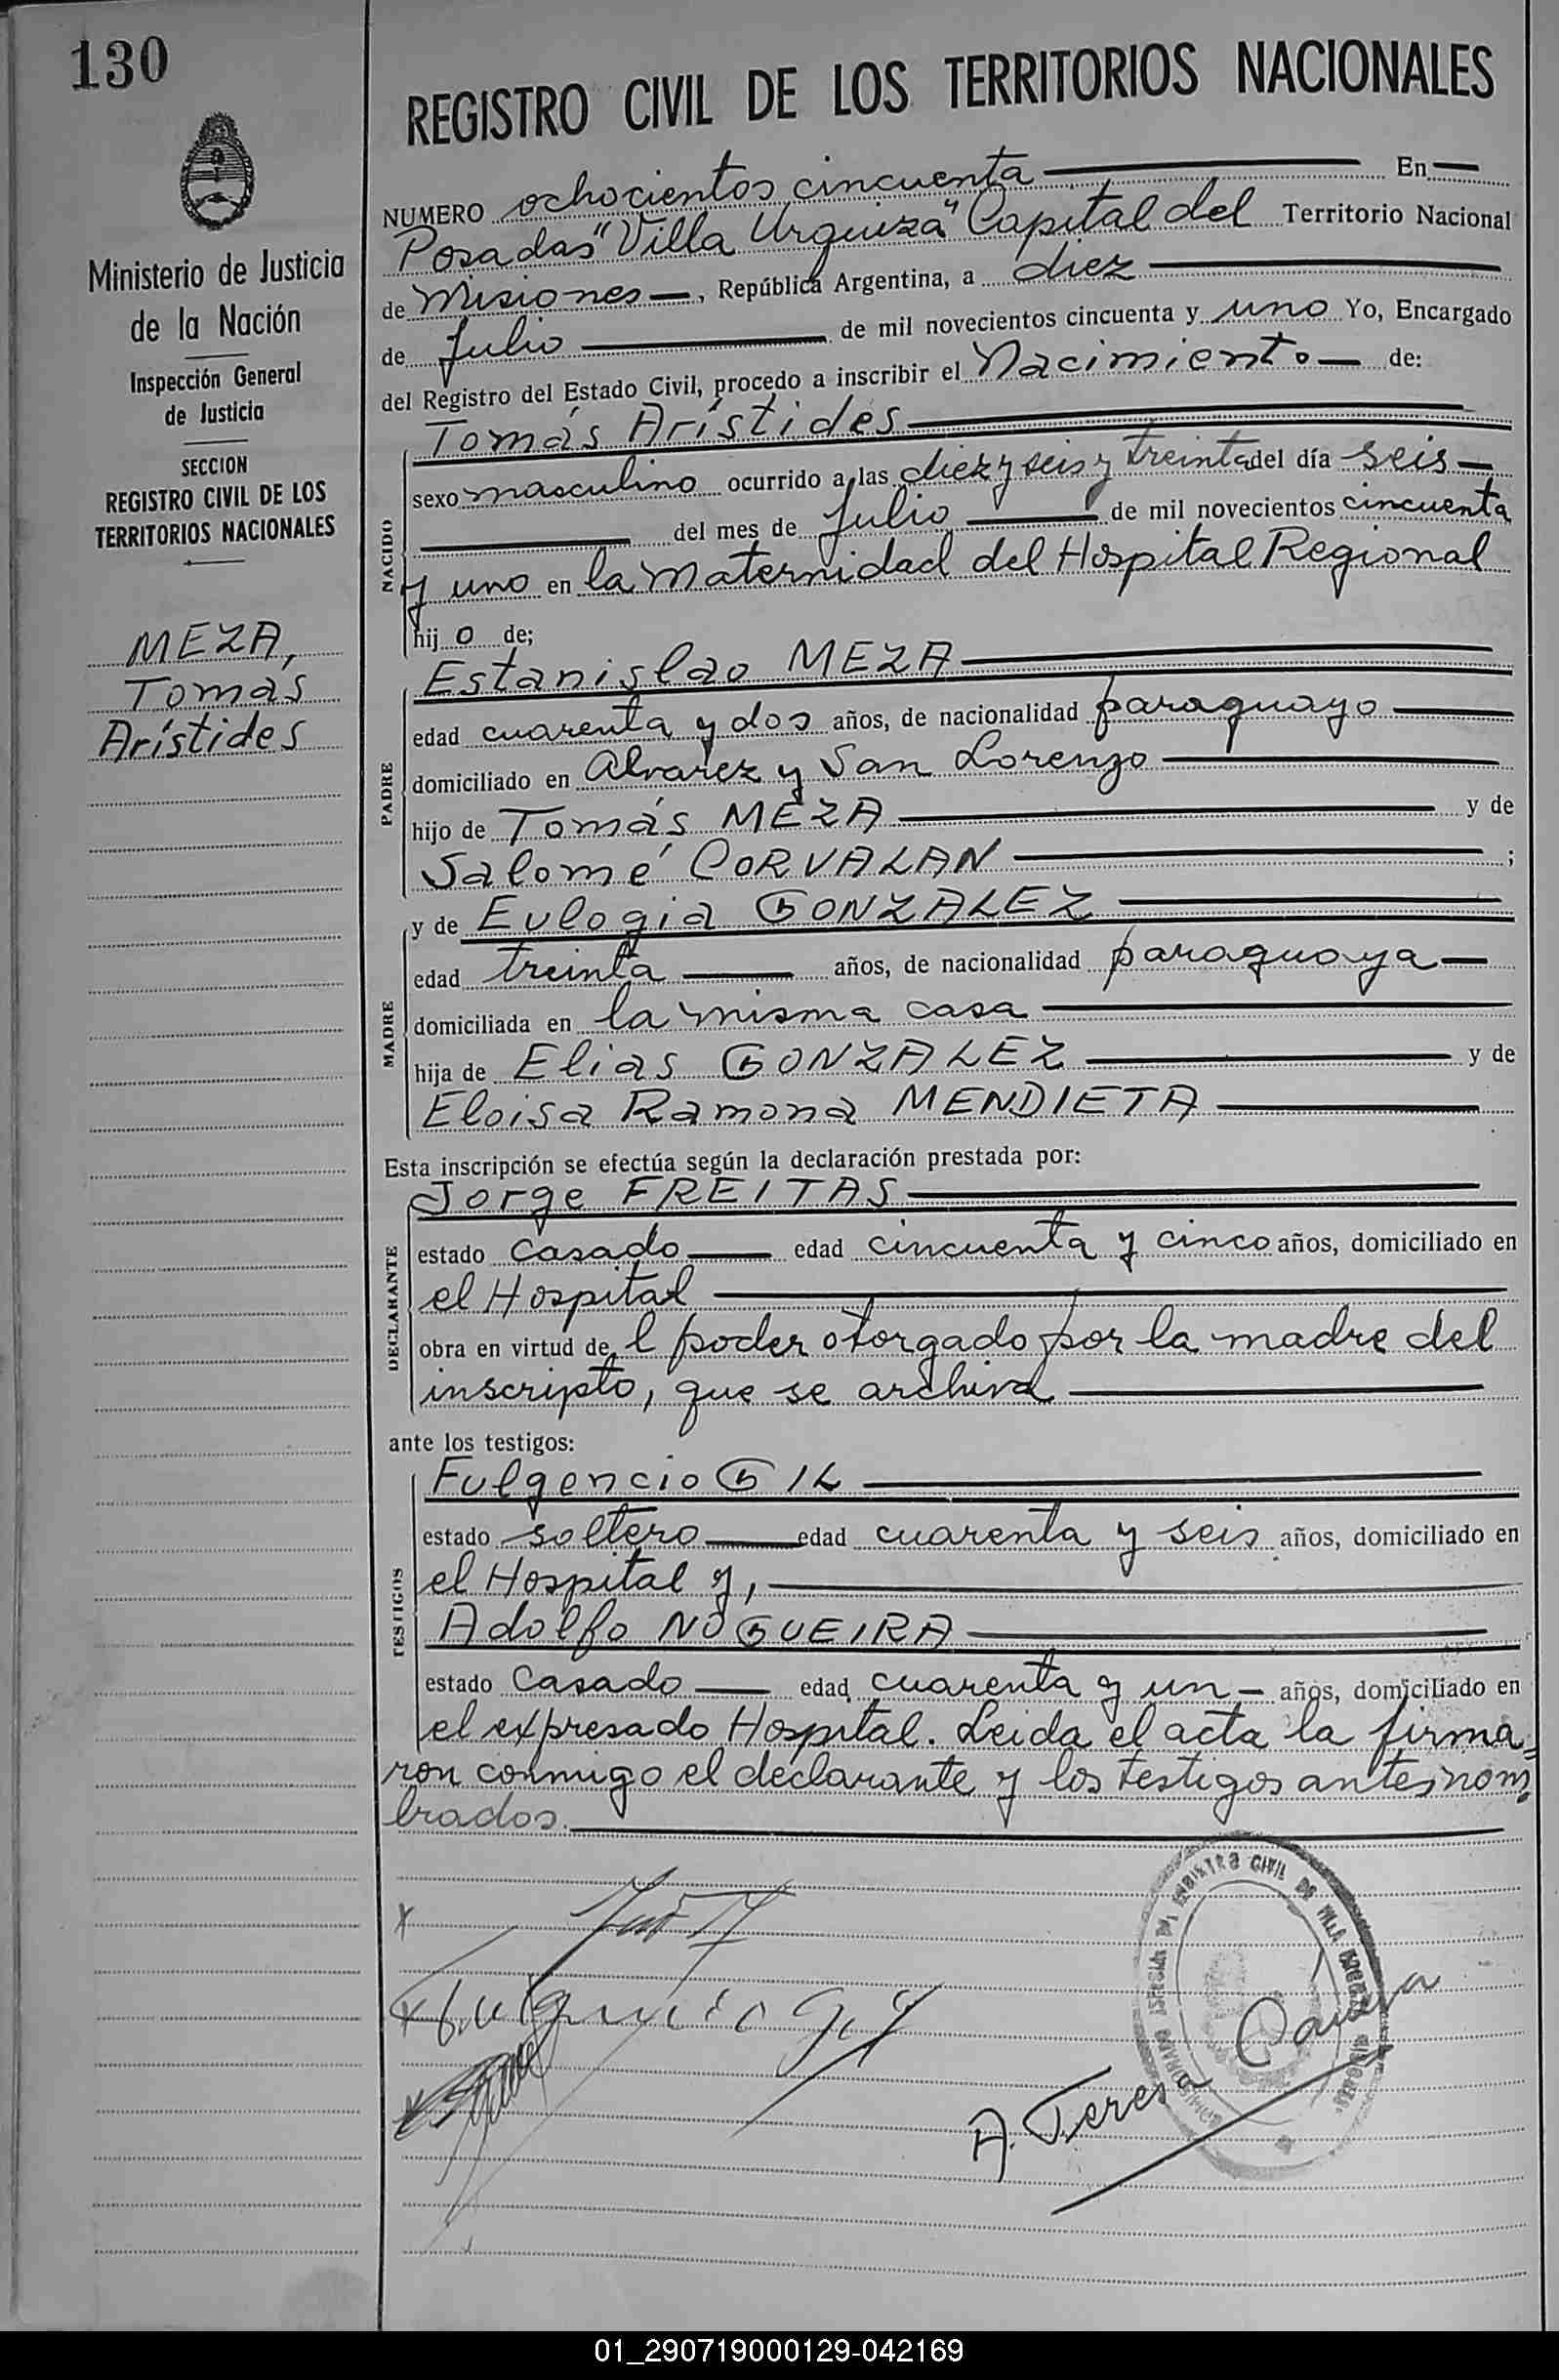 130
Ministerio de Justicia
de la Nación
Inspección General
de Justicia
SECCION
REGISTRO CIVIL DE LOS
TERRITORIOS NACIONALES
MEZA,
Tomás
Arístides
REGISTRO CIVIL DE LOS TERRITORIOS NACIONALES
NUMERO ochocientos cincuenta En
Posadas "Villa Urquiza" Capital del Territorio Nacional
de Misiones, República Argentina, a diez
de Julio de mil novecientos cincuenta y uno Yo, Encargado
del Registro del Estado Civil, procedo a inscribir el Nacimiento de:
NACIDO
Tomás Arístides
sexo masculino ocurrido a las diez y seis y treinta del día seis
del mes de Julio de mil novecientos cincuenta
y uno en la Maternidad del Hospital Regional
hij o de;
PADRE
Estanislao MEZA
edad cuarenta y dos años, de nacionalidad paraguayo
domiciliado en Alvarez y San Lorenzo
hijo de Tomás MEZA y de
Salomé CORVALAN ;
MADRE
y de Eulogia GONZALEZ
edad treinta años, de nacionalidad paraguaya
domiciliada en la misma casa
hija de Elias GONZALEZ y de
Eloisa Ramona MENDIETA
Esta inscripción se efectúa según la declaración prestada por:
DECLARANTE
Jorge FREITAS
estado casado edad cincuenta y cinco años, domiciliado en
el Hospital
obra en virtud de l poder otorgado por la madre del
inscripto, que se archiva
ante los testigos:
TESTIGOS
Fulgencio GIL
estado soltero edad cuarenta y seis años, domiciliado en
el Hospital y,
Adolfo NOGUEIRA
estado casado edad cuarenta y un años, domiciliado en
el expresado Hospital. Leida el acta la firma=
ron conmigo el declarante y los testigos antes nom=
brados.
Fulgencio Gil
A. Teresa
01_290719000129-042169